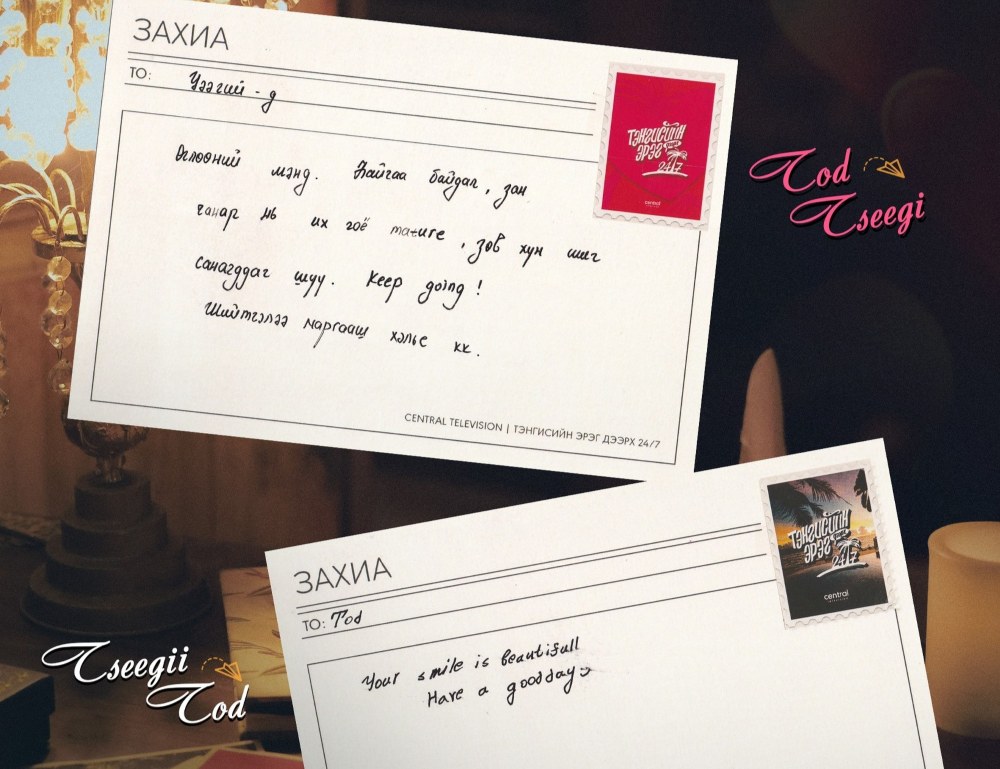 ЗАХИА
TO: Цээгий - д
Өглөөний мэнд. Байгаа байдал, зан
чанар нь их гоё mature, зөв хүн шиг
санагддаг шүү. Keep going!
Шийтгэлээ маргааш хэлье кк.
CENTRAL TELEVISION | ТЭНГИСИЙН ЭРЭГ ДЭЭРХ 24/7
ТЭНГИСИЙН
ЭРЭГ ДЭЭРХ
24/7
central
Tod
Tseegi
ЗАХИА
TO: Tod
Your smile is beautifull
Have a goodday
ТЭНГИСИЙН
ЭРЭГ ДЭЭРХ
24/7
central
TELEVISION
Tseegii
Tod